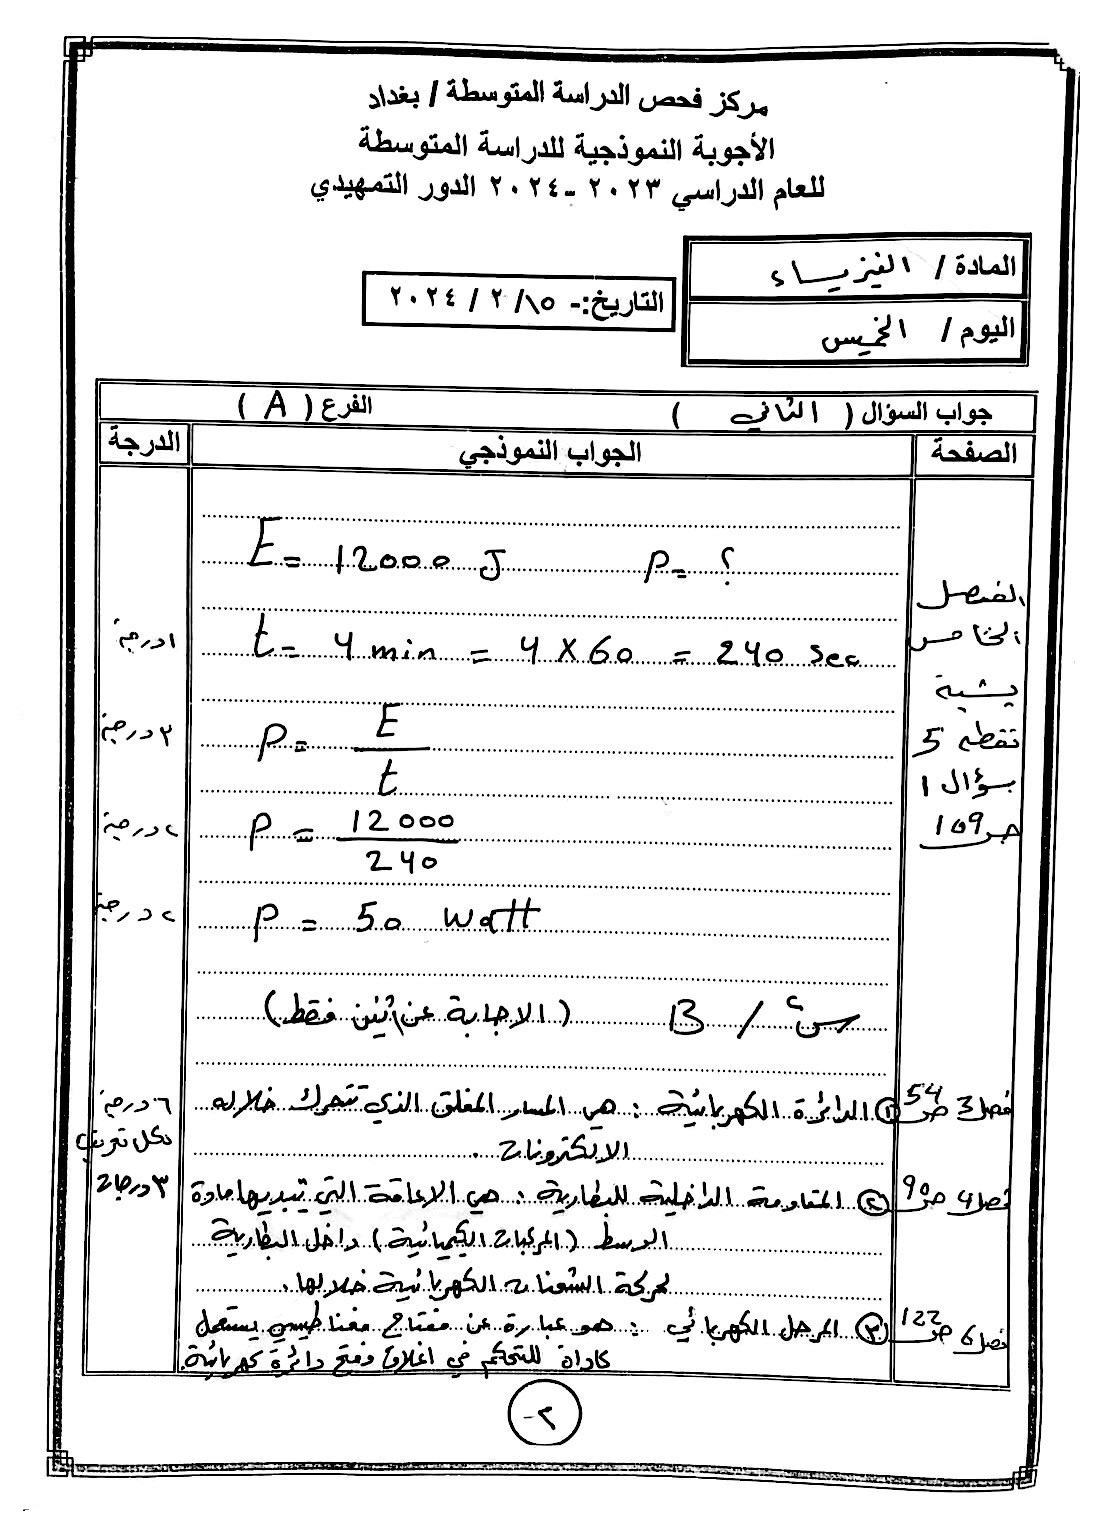 مركز فحص الدراسة المتوسطة / بغداد
الأجوبة النموذجية للدراسة المتوسطة
للعام الدراسي ٢٠٢٣ - ٢٠٢٤ الدور التمهيدي
المادة / الفيزياء
اليوم / الخميس
التاريخ:- ١٥/ ٢ / ٢٠٢٤
جواب السؤال ( الثاني ) الفرع ( A )
الصفحة الجواب النموذجي الدرجة
E = 12000 J P = ؟
t = 4 min = 4 X 60 = 240 sec
١ درجة
P = E / t
٢ درجة
P = 12000 / 240
٢ درجة
P = 50 watt
٢ درجة
الفصل
الخامس
يشبه
نقطة 5
سؤال 1
ص 109
س٢ / B (الاجابة عن اثنين فقط)
فصل 3 ص 54
① الدائرة الكهربائية : هي المسار المغلق الذي تتحرك خلاله
الالكترونات .
٦ درجة
لكل تعريف
٣ درجات
فصل 4 ص 90
② المقاومة الداخلية للبطارية : هي الاعاقة التي تبديها مادة
الوسط (المركبات الكيميائية) داخل البطارية
لحركة الشحنات الكهربائية خلالها .
فصل 6 ص 122
③ المرحل الكهربائي : هو عبارة عن مفتاح مغناطيسي يستعمل
كاداة للتحكم في اغلاق وفتح دائرة كهربائية .
٢-